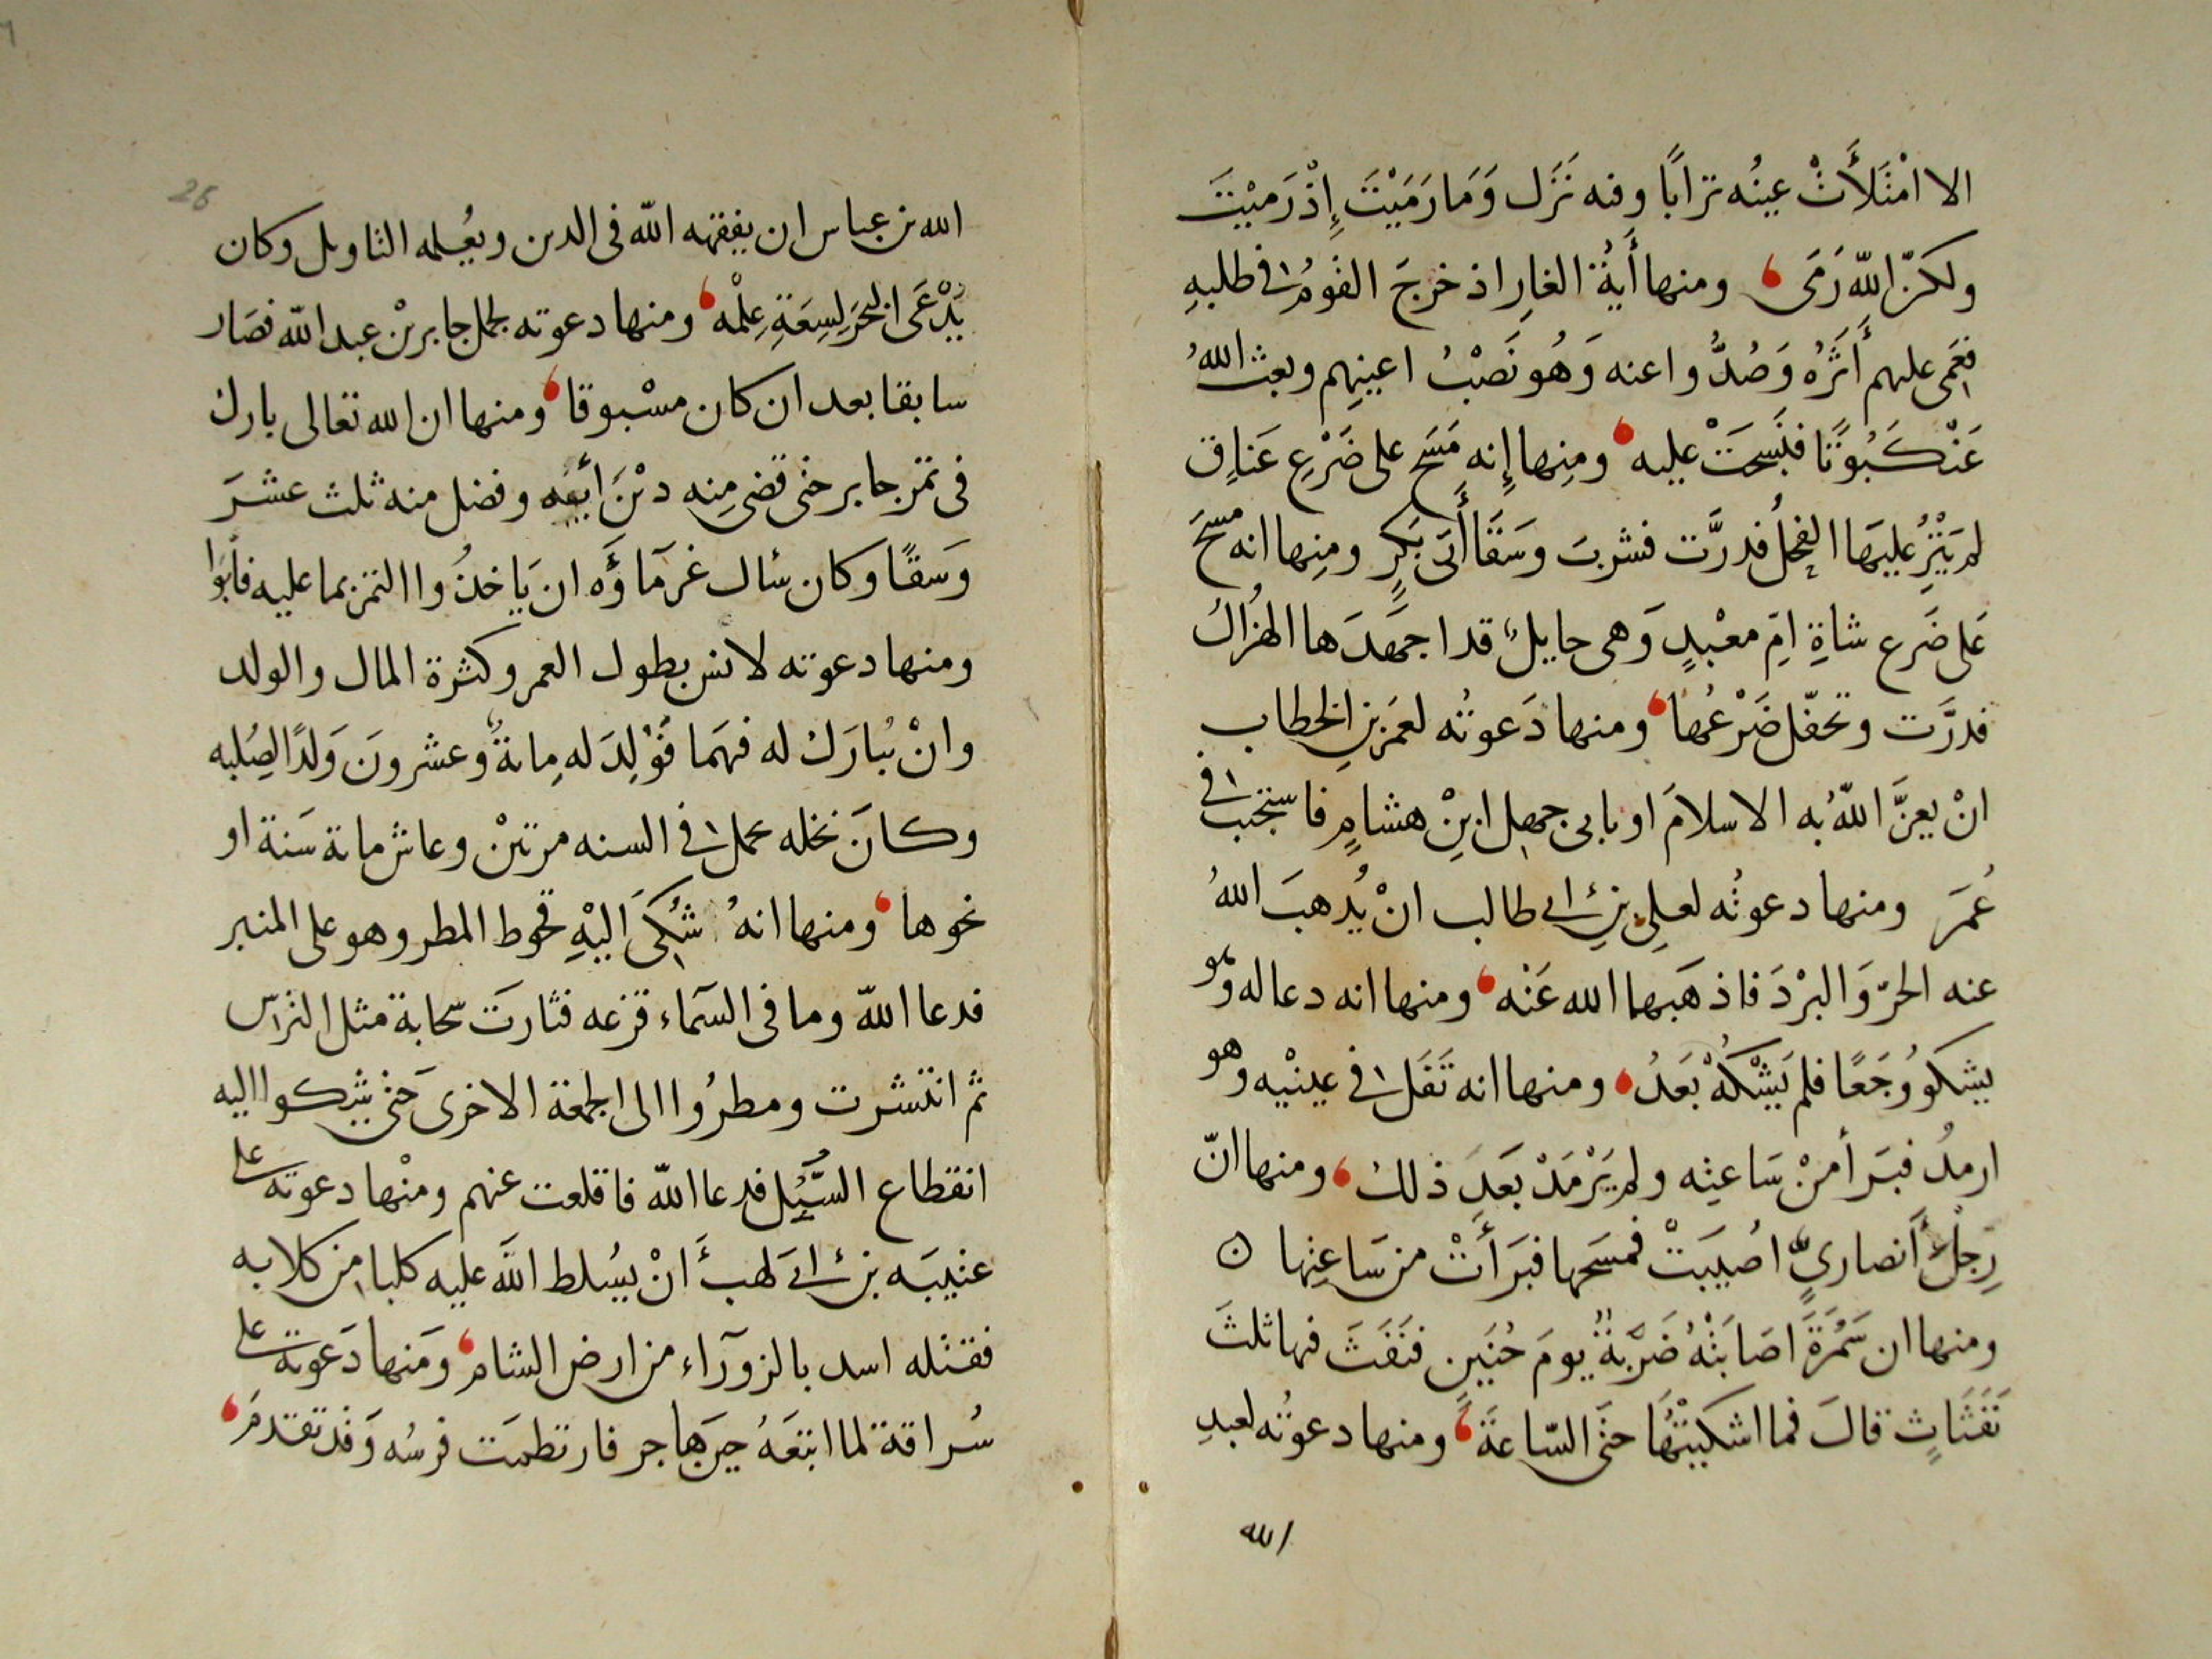 الا امْتَلَأَتْ عينُه ترابًا وفيه نَزَل وَمَا رَمَيْتَ إِذْ رَمَيْتَ
ولكنّ اللّه رَمَى ومنها أَيةُ الغارِ اذ خرجَ القَومُ فى طلبهِ
فعَمى عليهم أَثَرُه وَصُدُّوا عنه وَهُو نَصْبُ اعينِهم وبعث اللهُ
عَنْكَبُوتًا فنَسجَتْ عليه ومنِها إِنه مَسَح على ضَرْعِ عَناقٍ
لم يَنْزُ عليهَا الفحلُ فدرَّت فشربَ وسَقَا أَبى بَكرٍ ومنِها انه مسَحَ
عَلى ضَرع شاةِ امِّ معْبدٍ وَهى حايلٌ قد اجهَدَها الهُزالُ
فدرَّت وتحفّل ضَرْعُها ومنها دَعوتُه لعمَر بنِ الخطاب
انْ يعزَّ اللّهُ به الاسلامَ او بابى جهل ابنِ هشامٍ فاستجيب فى
عُمَر ومنها دعوتُه لعلِى بنِ ابى طالب انْ يُذهبَ اللهُ
عنه الحرّ وَالبرْدَ فاذهَبهما الله عَنْه ومنها انه دعا له وهو
يشكو وُجَعًا فلم يَشْكُهْ بَعَدُ ومنها انه تَفَل فى عينيْه وهو
ارمدُ فبَرأ منْ سَاعتِه ولم يَرْمَدْ بَعَدِ ذلك ومنها انّ
رِجلُ أَنصارىٍّ اصُيبَتْ فمسَحها فبَرَأَتْ من سَاعِتها ن
ومنها ان سَمُرَةَ اصَابَتْهُ ضَرْبةٌ يومَ حُنَينٍ فنَفَثَ فيها ثلثَ
نَفَثَاتٍ قالَ فما اشتكيتُهَا حتَى السّاعَةَ ومنها دعوتُه لعبدِ
الله
الله بن عباس ان يفقهه اللّه فى الدين ويعُلمه التاويل وكان
يُدْعَى البَحَر لِسِعَةِ عِلْمْه ومنها دعوته لجمل جابر بْن عبد اللّه فصَار
سابقا بعد ان كان مسْبوقا ومنها ان الله تعالى بارك
فى تمْر جابر حتى قضى مِنه ديْنَ أبيْه وفضل منه ثلث عشرَ
وَسقًا وكان سئال غرَمآؤَه ان يَاخذُوا التمْر بما عليه فأبَوا
ومنها دعوته لانس بطول العمر وكثرة المال والولد
وانْ يُبارَك له فيهَما فَوُلِدَ له مِائةٌ وعشرونَ وَلدًا لصُِلبه
وكانَ نخله يحمل فى السنه مرتينْ وعاش مائة سَنة او
نحوها ومنها انهُ شُكىَ اليْهِ قحوط المطر وهو على المنبر
فدعا اللّه وما فى السَمآء قزعه فثارتَ سحابة مثل الترّس
ثم انتشرت ومطرُوا الى الجمعة الاخرىَ حتى شكوا اليه
انقطاع السُّبُل فدعا اللّه فاقلعت عنهم ومنْها دعوته على
عتيبَه بن ابى لهب أَنْ يسُلط اللَه عليه كلبا من كلابه
فقتله اسد بالزورَآء من ارض الشام ومَنها دَعوته على
سُراقة لما اتبَعَهُ حينَ هاجر فارتطمَت فرسُه وَقد تقدمَ
26